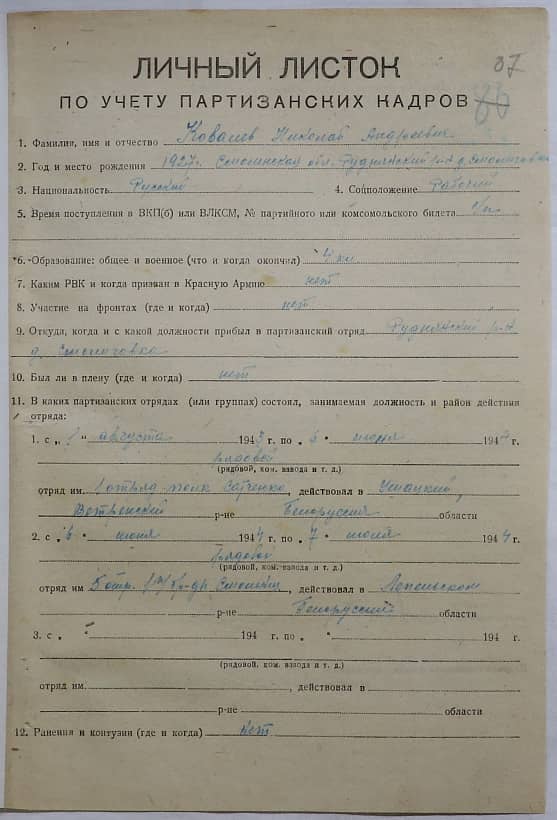 37
ЛИЧНЫЙ ЛИСТОК
ПО УЧЕТУ ПАРТИЗАНСКИХ КАДРОВ
1. Фамилия, имя и отчество Ковалев Николай Андреевич
2. Год и место рождения 1927г. Смоленская обл. Руднянский р-н д.
3. Национальность Русский 4. Соцположение Рабочий
5. Время поступления в ВКП(б) или ВЛКСМ, № партийного или комсомольского билета б/п
*6. Образование: общее и военное (что и когда окончил) 4 кл
7. Каким РВК и когда призван в Красную Армию нет
8. Участие на фронтах (где и когда) нет
9. Откуда, когда и с какой должности прибыл в партизанский отряд Руднянский р-н
д.
10. Был ли в плену (где и когда) нет
11. В каких партизанских отрядах (или группах) состоял, занимаемая должность и район действия
отряда:
1. с „1“ августа 1943 г. по „6“ июня 194 г.
рядовой
(рядовой, ком. взвода и т. д.)
отряд им. 1 отряд полк Садченко, действовал в Ушацкий,
Ветренский р-не Белоруссия области
2. с „6“ июня 1944 г. по „7“ июня 1944 г.
рядовой
(рядовой, ком. взвода и т. д.)
отряд им. 5 отр. , действовал в Лепельском
р-не Белоруссия области
3. с „ “ 194 г. по „ “ 194 г.
(рядовой, ком. взвода и т. д.)
отряд им. , действовал в
р-не области
12. Ранения и контузии (где и когда) нет